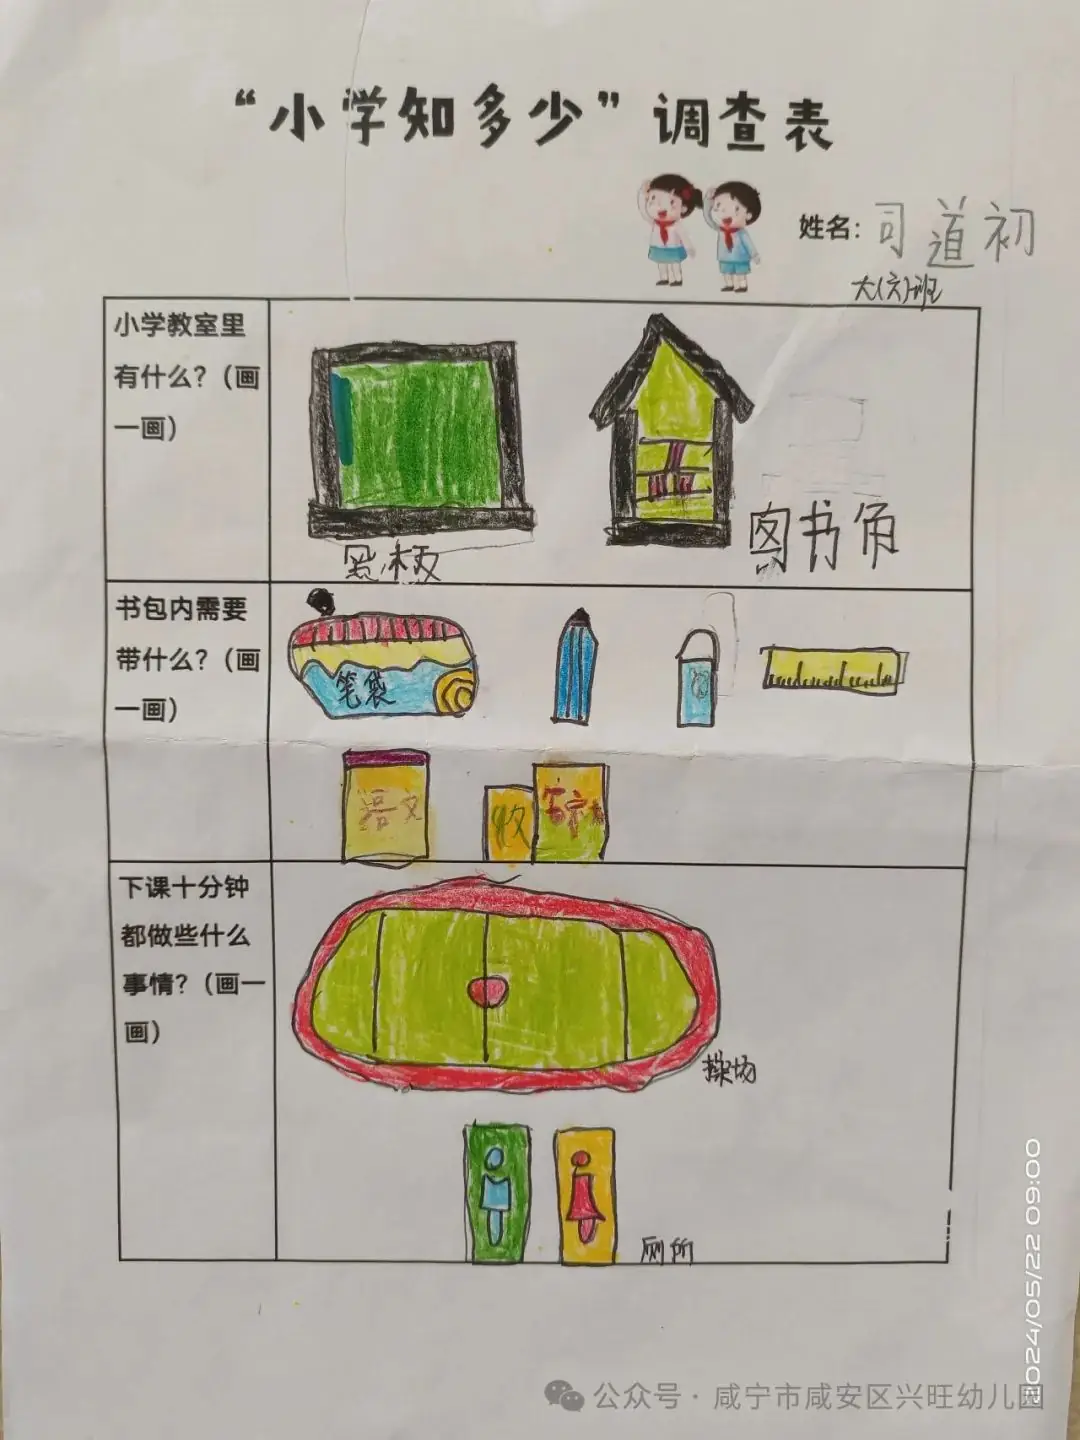 “小学知多少”调查表
姓名：司道初
大(六)班
小学教室里
有什么？（画
一画）
黑板
图书角
书包内需要
带什么？（画
一画）
笔袋
语文
下课十分钟
都做些什么
事情？（画一
画）
操场
厕所
2024/05/22 09:00
公众号·咸宁市咸安区兴旺幼儿园